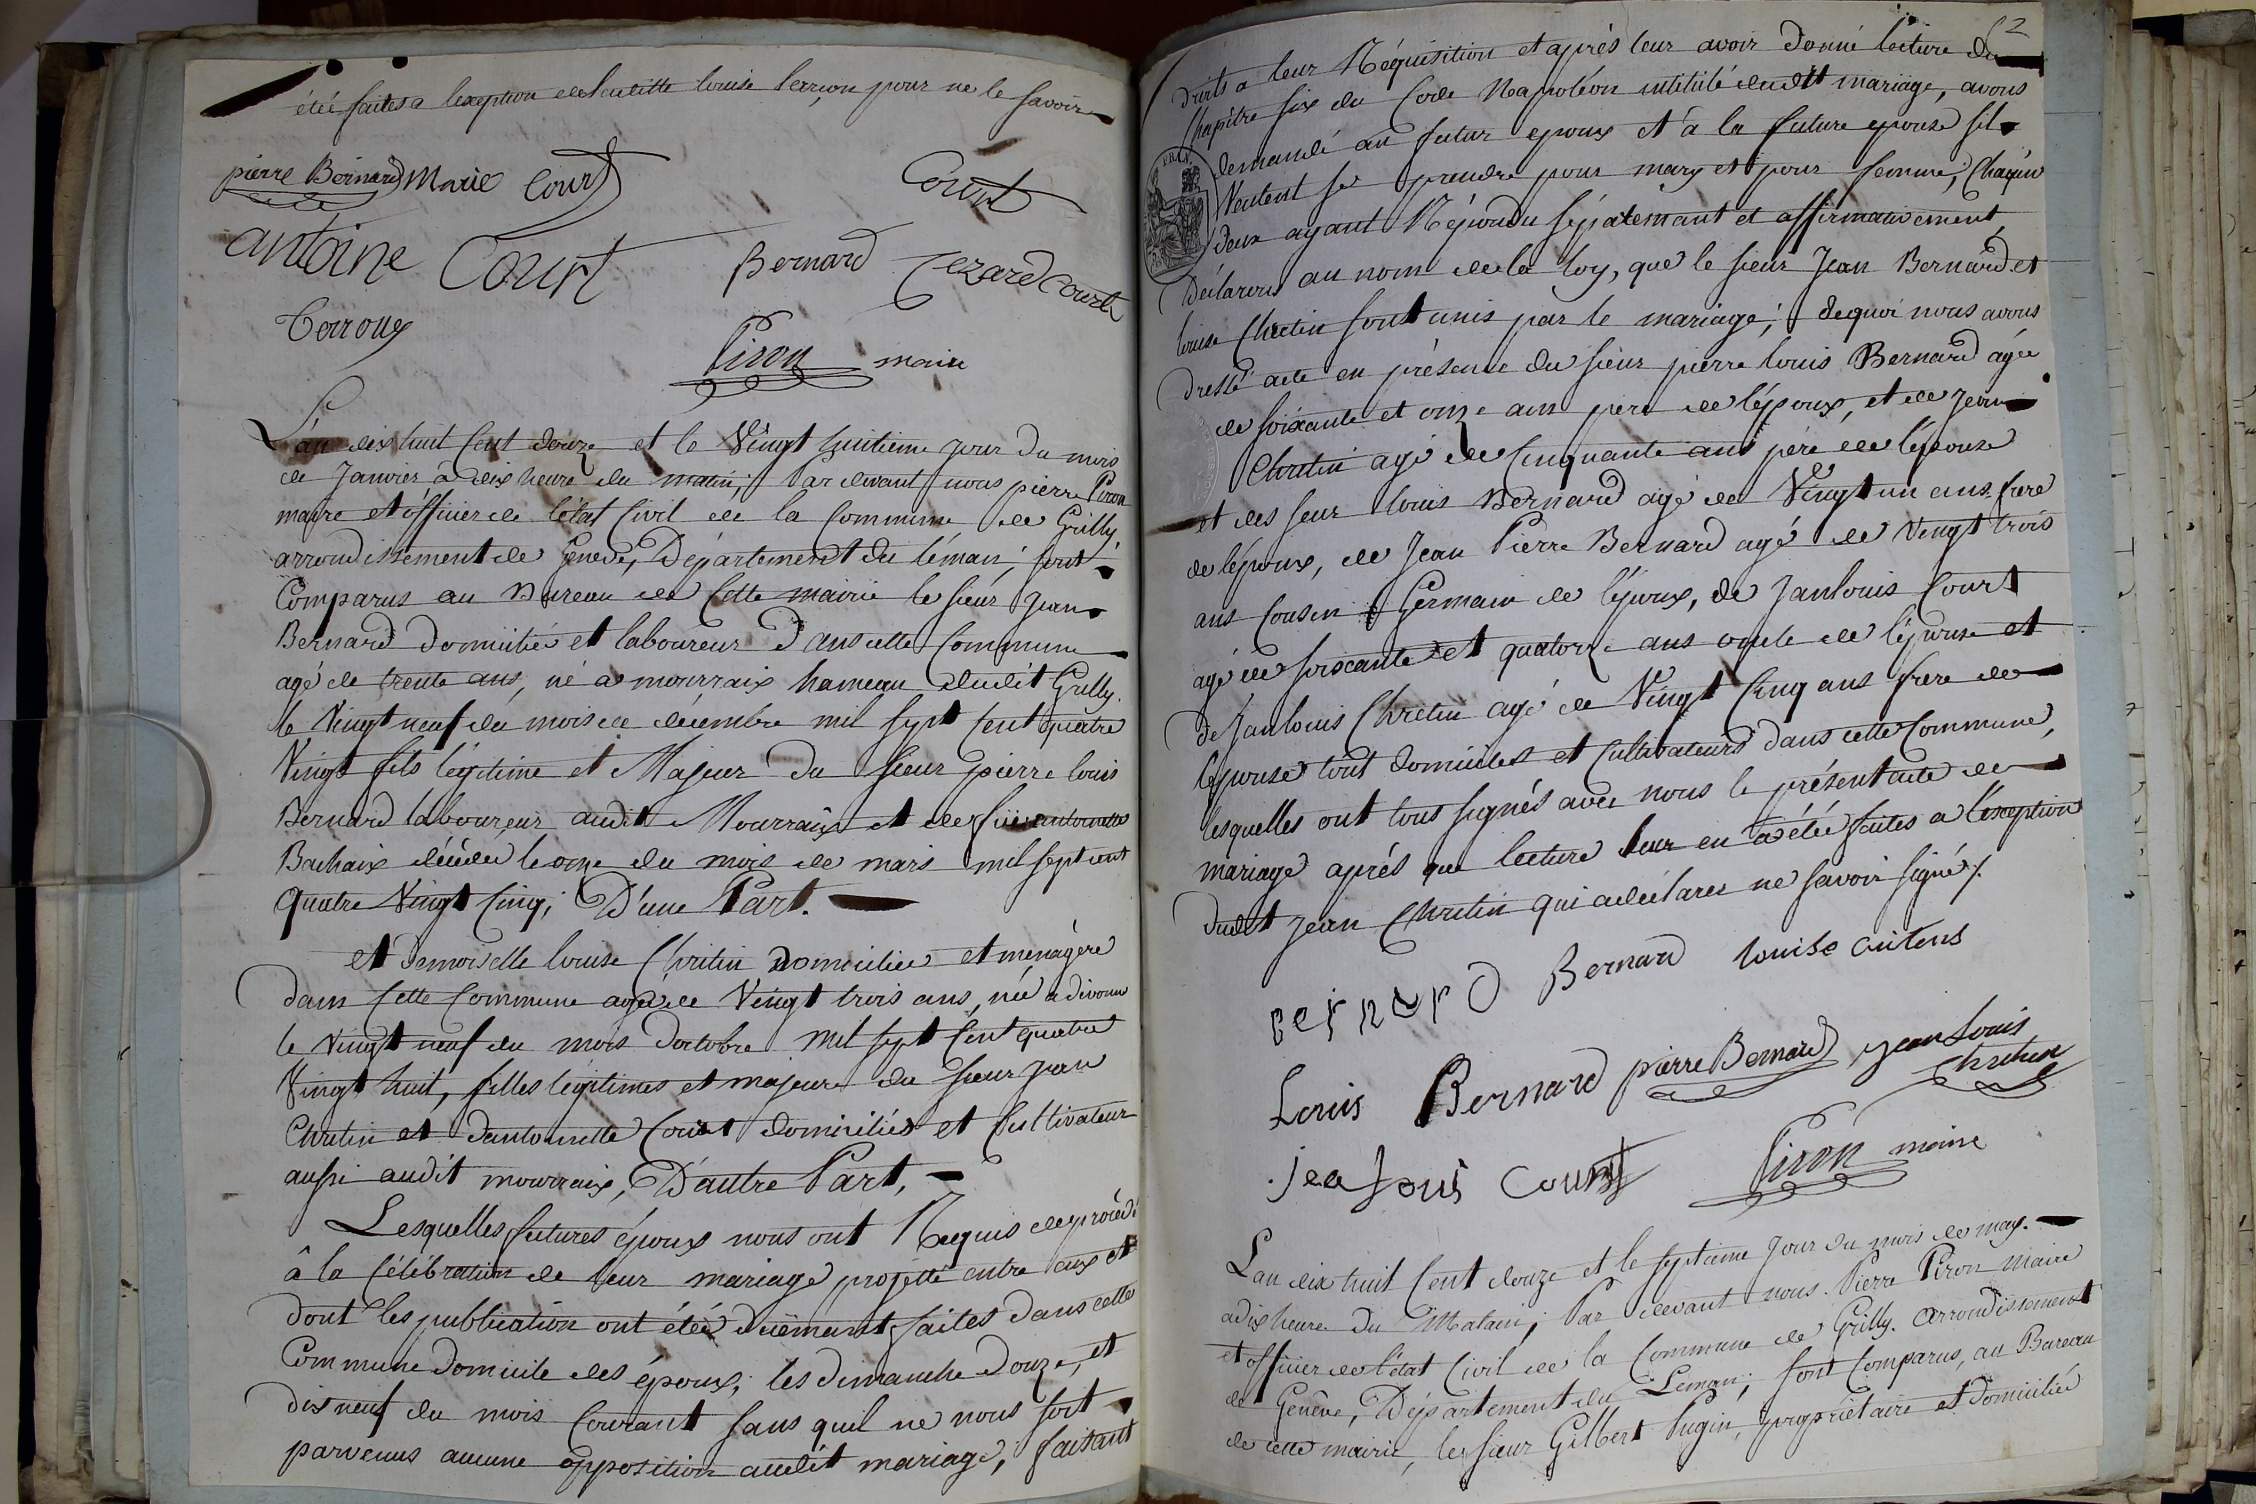 étée faites a lexception de laditte louise pour ne le savoir
pierre Bernard Marie Court
Court
antoine Court Bernard Cezard Court
Terroux
Piron maire
L'an dix huit Cent douze et le Vingt huitieme jour du mois
de Janvier à dix heure du matin; Par devant nous pierre Piron
maire et officier de l'état Civil de la Commune de Grilly
arrondissement de Geneve, Département du léman; sont
Comparus au Bureau de Cette mairie le sieur Jean
Bernard domicilié et laboureur dans cette Commune
agé de trente ans, né a mourraix hameau dudit Grilly
le Vingt neuf du mois de décembre mil sept Cent quatre
Vingt fils légitime et Majeur du sieur pierre louis
Bernard laboureur audit Mourraix et de antoinette
Bachaix décédée le onze du mois de mars mil sept cent
Quatre Vingt Cinq; D'une Part.
et demoiselle louise Chritin domiciliée et menagère
dans Cette Commune agée de Vingt trois ans, née a divonne
le Vingt neuf du mois doctobre mil sept Cent quatre
Vingt huit, filles légitimes et majeure du sieur jean
Chritin et dantoinette Court domiciliés et Cultivateur
aussi audit mourraix, D'autre Part,
Lesquelles futures époux nous ont Requis de procédé
à la Célébration de leur mariage projetté entre eux et
dont les publication ont étéés duëmant faites dans cette
Commune domicile des époux; les dimanche douze, et
dix neuf du mois Courant sans quil ne nous soit
parvenus aucune opposition audit mariage; faisant
52
droits a leur Réquisition et aprés leur avoir donné lecture du
Chapitre six du Code Napoléon intitulé dudit mariage, avons
demandé au futur epoux et à la future epouse sil
Veulent se prendre pour mary et pour femme, Chaqun
deux ayant Répondu séparemant et affirmativement,
Déclarons au nom de la loy, que le sieur Jean Bernard et
louise Chretin sont unis par le mariage; dequoi nous avons
dressé acte en présence du sieur pierre louis Bernard agée
de soixante et onze ans père de l'époux, et de jean
Chritin agé de Cinquante ans père de l'épouse
et des seur louis Bernard agé de Vingt un ans frere
de l'époux, de Jean Pierre Bernard agé de Vingt trois
ans Cousin Germain de l'époux, de Janlouis Court
agé de soixante et quatorze ans oncle de l'épouse et
de Janlouis Chretin agé de Vingt Cinq ans frere de
lepouse tout domicilés et Cultivateurs dans cette Commune,
lesquelles ont tous signés avec nous le présent acte de
mariage aprés que lecture leur en a étée faites a l'exception
dudit jean Chritin qui a déclarer ne savoir signé/.
Bernard Bernard louise critens
Louis Bernard pierre Bernard jean Louis
Chretien
jea Louis Court Piron maire
L'an dix huit Cent douze et le septieme Jour du mois de may.
a dix heure du Matain; Par devant nous Pierre Piron Maire
et officier de l'état Civil de la Commune de Grilly. arrondissement
de Genêve, Département du Leman; sont Comparus, au Bureau
de cette mairie, le sieur Gilbert Pugin, propriétaire et domicilié